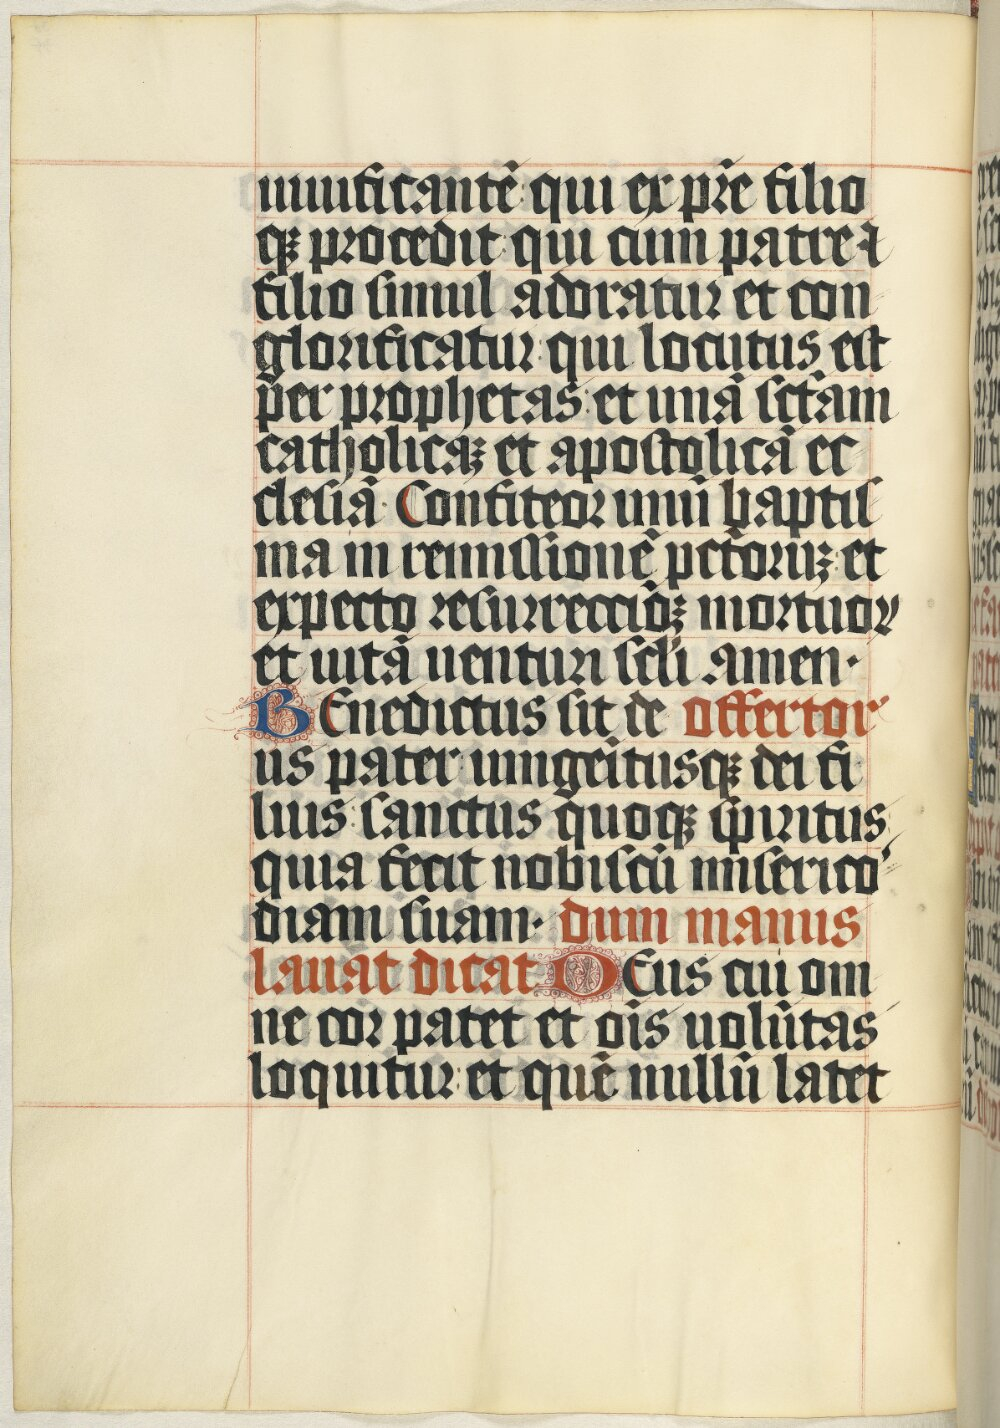 uiuificantē qui ex pr̄e filio
qꝫ procedit qui cum patre ⁊
filio simul adoratur et con
glorificatur qui locutus est
per prophetas et unā sctāam
catholicaꝫ et apostolicā ec
clesiā Confiteor unū baptis
ma in remissionē pctōruꝫ et
expecto resurrecciōꝫ mortuoꝝ
et uitā uenturi sclī Amen·
BEnedictus sit de offertor
us pater unigeītusqꝫ dei fi
lius sanctus quoqꝫ spiritus
quia fecit nobiscū miserico'
diam suam· dum manus
lauat dicat DEus cui om
ne cor patet et oīs uolūtas
loquitur et quē nullū latet